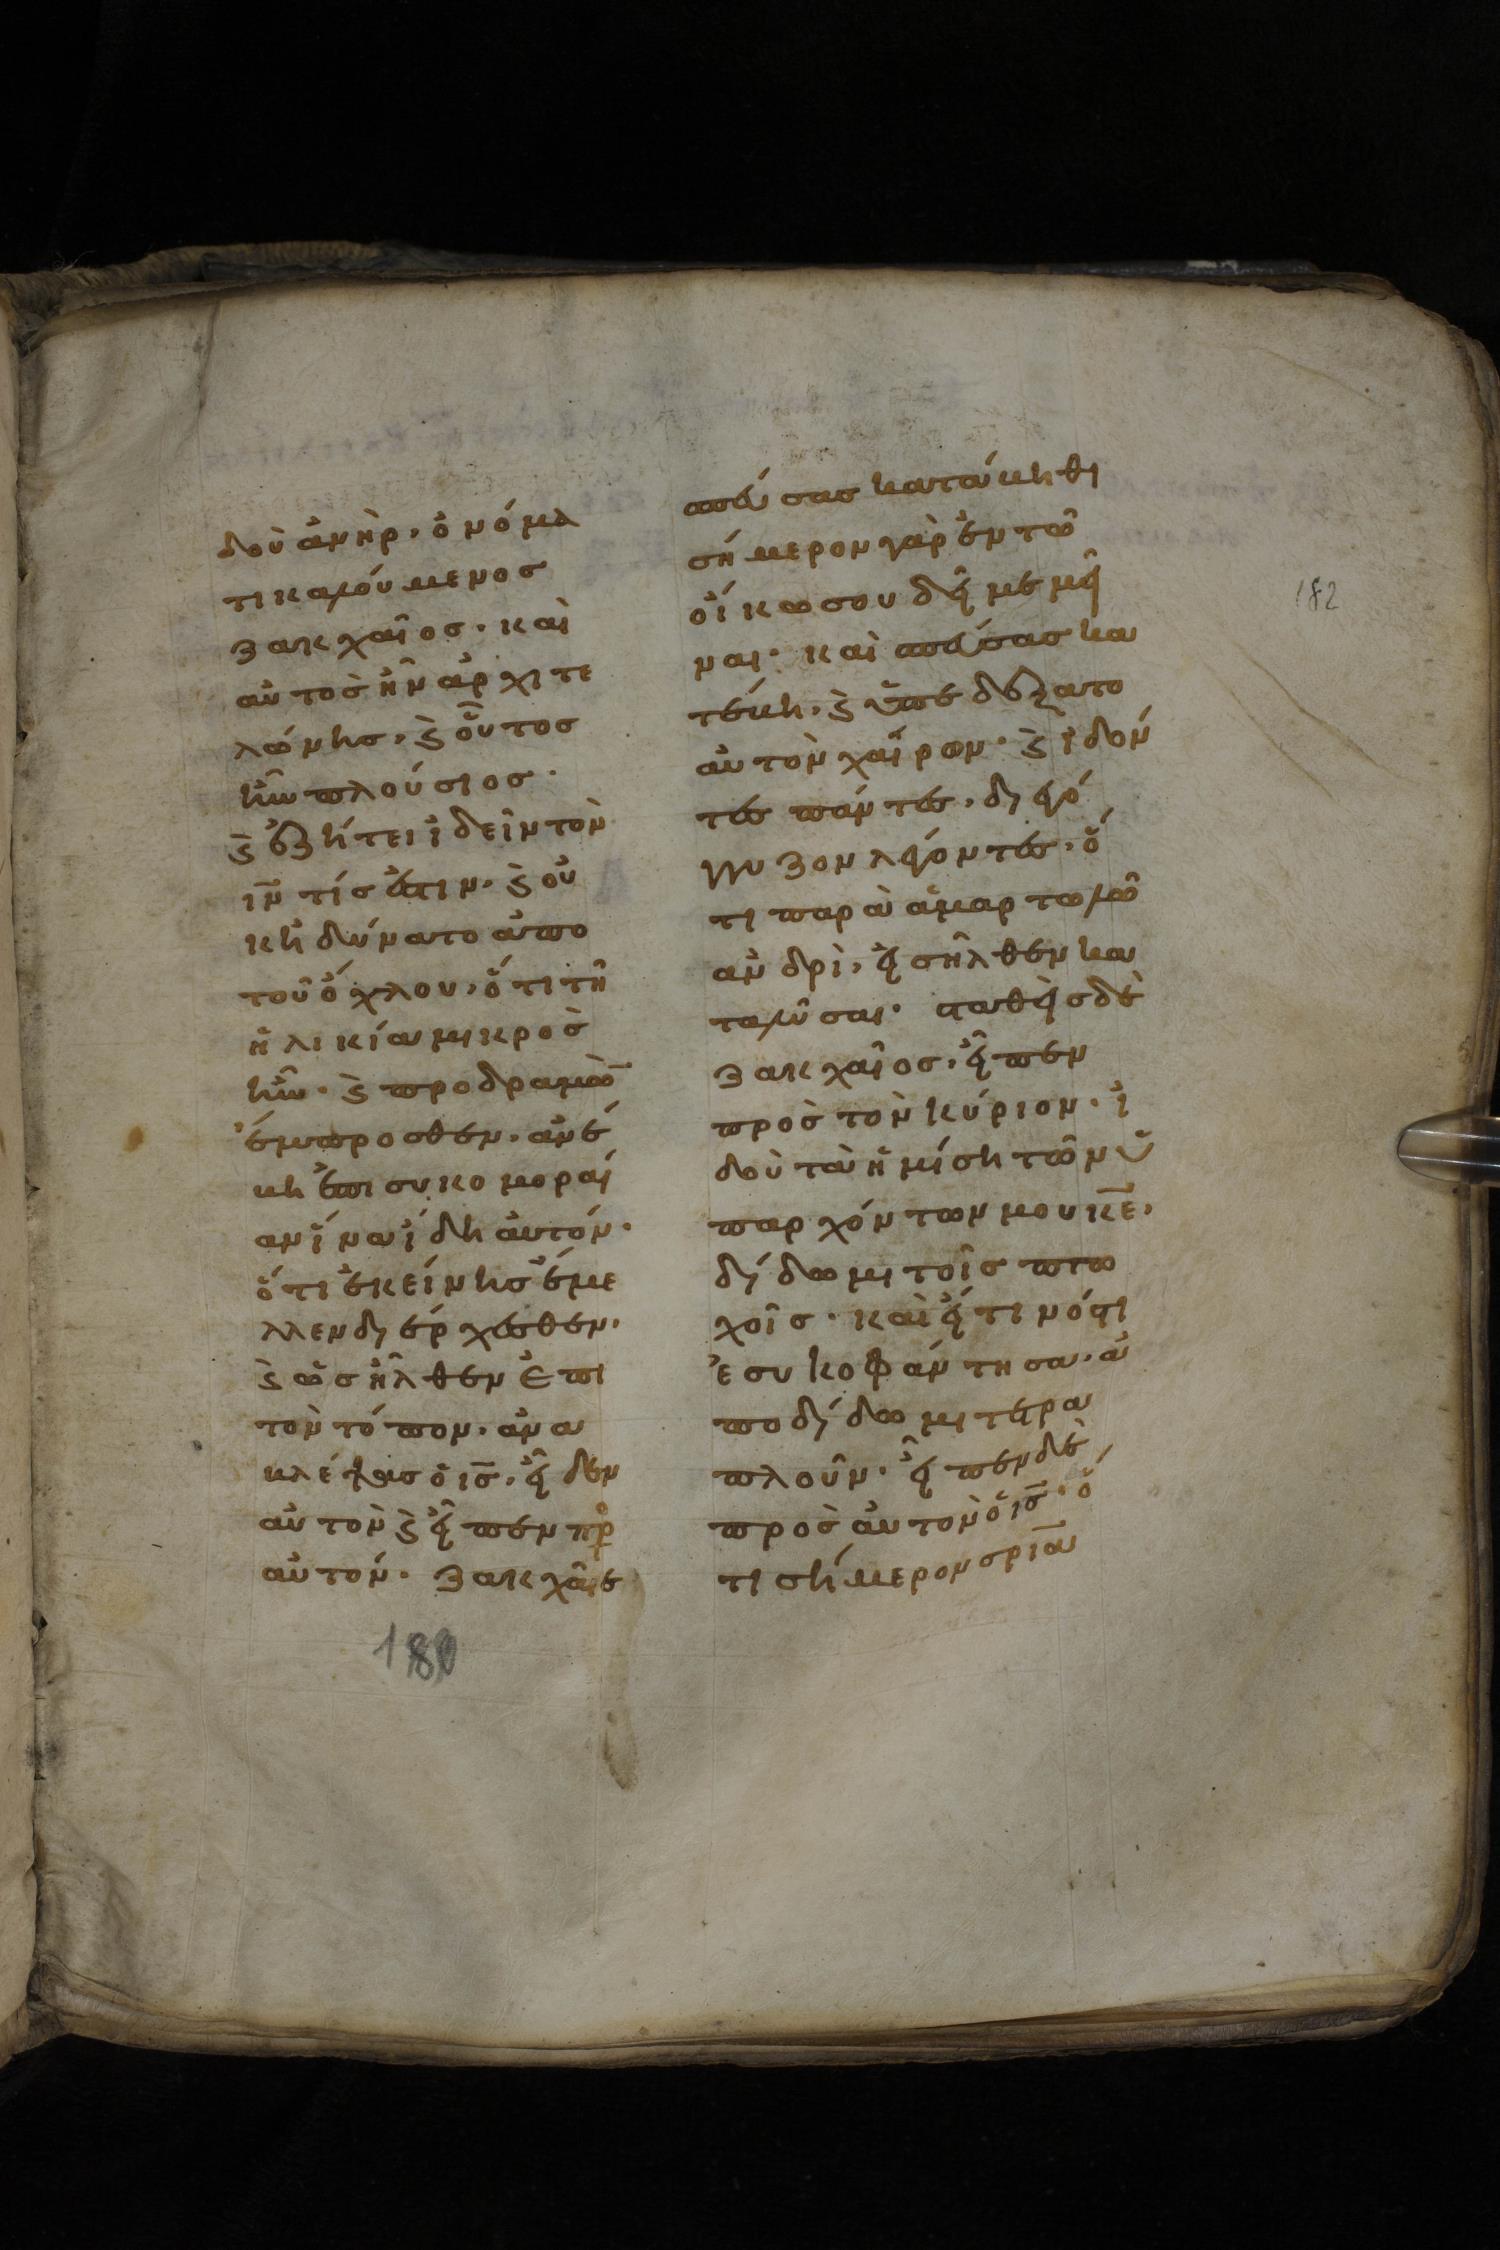 δοὺ ἀνὴρ, ὀνόμα
τι καλούμενος
ζακχαῖος. καὶ
αὐτὸς ἦν ἀρχιτε
λώνης, ϗ οὗτος
ἦν πλούσιος.
ϗ ἐζήτει ἰδεῖν τὸν
ιν̅ τίς ἐστιν. ϗ οὐ
κ ἠδύνατο ἀπο
τοῦ ὄχλου, ὅτι τῆ
ἡλικία μικρὸς
ἦν. ϗ προδραμὼ̅
ἔμπροσθεν. ἀνέ
βη ἐπι συκομοραί
αν ἵνα ἴδη αὐτόν.
ὅτι ἐκείνης ἔμε
λλεν διέρχεσθεν.
ϗ ὡς ἦλθεν ἐπι
τὸν τόπον. ἀνα
βλέψας ὁ ις̅, εἶδεν
αὐτὸν ϗ εἶπεν πρ
αὐτόν. ζακχαῖε
σπεύσας κατάβηθι
σήμερον γὰρ ἐν τῶ
οἴκω σου δεῖ με μεῖ
ναι. καὶ σπεύσας κα
τέβη, ϗ ὑπεδέξατο
αὐτὸν χαίρων. ϗ ἰδόν
τες πάντες, διεγό
γγυζον λέγοντες, ὅ
τι παρὰ ἁμαρτωλῶ
ανδρὶ, εἰσῆλθεν κα
ταλῦσαι. σταθεὶς δὲ
ζακχαῖος, εἶπεν
πρὸς τὸν κύριον. ἰ
δοὺ τὰ ἡμίση τῶν ὑ
παρχόντων μου κε̅,
δίδωμι τοῖς πτω
χοῖς. καὶ εἴ τι νός τι
ἐσυκοφάντησα, ἀ
ποδίδωμι τετρα
πλοῦν. εἶπεν δὲ
πρὸς αὐτὸν ὁ ις̅. ὅ
τι σήμερον σρια̅
180
182